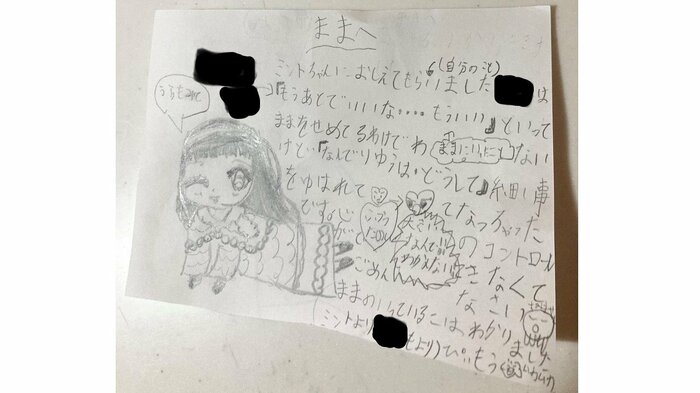 ままへ
(自分のこと)
ミントちゃんにおしえてもらいました
は
『もうあとでいいな....もういい』といって
ままをせめてるわけでわ
ままにいったこと
ない
けど『なんでりゆうは・どうして』細い事
をゆはれて
てなっちゃった
です。心
がて
のコントロール
大きい
なんで!!
わかんない
できなくて
ごめん
なさい
ままのいっていることは、わかりました
(ミントより
もより)
もう
うらもみて